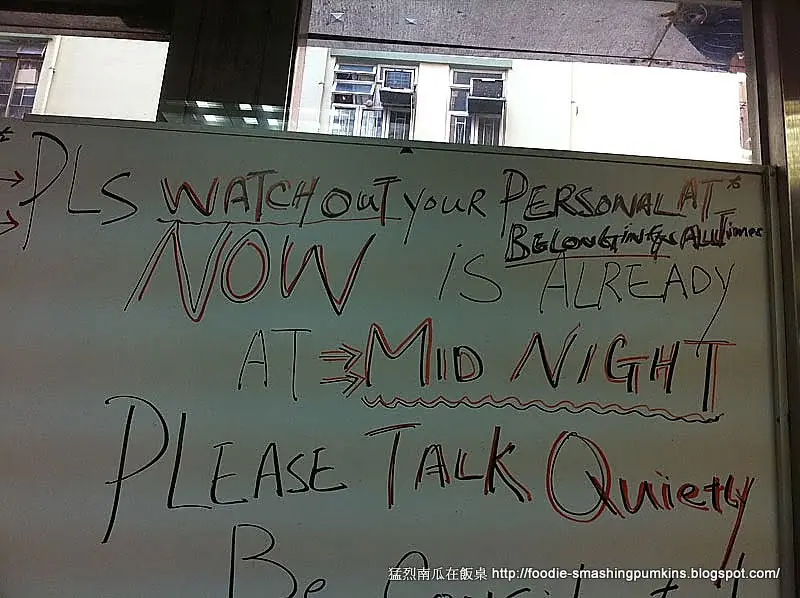 PLS WATCH OUT YOUR PERSONAL AT
BELONGINGS ALL Times
NOW IS ALREADY
AT MID NIGHT
PLEASE TALK QuietLy
Be
猛烈南瓜在飯桌 http://foodie-smashingpumkins.blogspot.com/